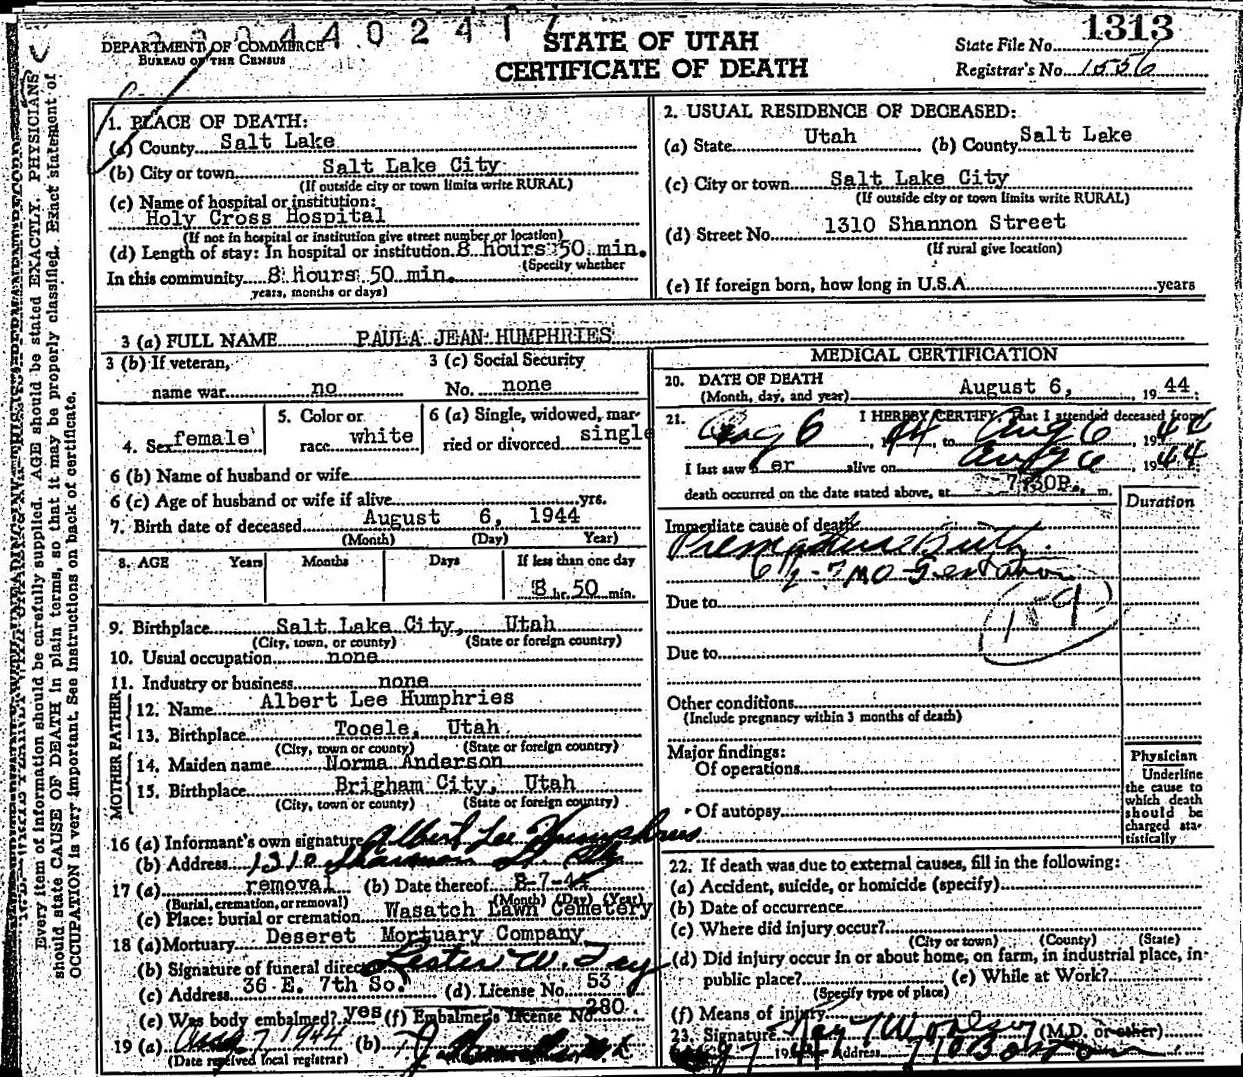 44024
1313
DEPARTMENT OF COMMERCE
BUREAU OF THE CENSUS
STATE OF UTAH
CERTIFICATE OF DEATH
State File No.
Registrar's No. 1556
Every item of information should be carefully supplied. AGE should be stated EXACTLY. PHYSICIANS
should state CAUSE OF DEATH in plain terms, so that it may be properly classified. Exact statement of
OCCUPATION is very important. See instructions on back of certificate.
1. PLACE OF DEATH:
(a) County Salt Lake
(b) City or town Salt Lake City
(If outside city or town limits write RURAL)
(c) Name of hospital or institution:
Holy Cross Hospital
(If not in hospital or institution give street number or location)
(d) Length of stay: In hospital or institution 8 hours 50 min.
(Specify whether
In this community 8 hours 50 min.
years, months or days)
2. USUAL RESIDENCE OF DECEASED:
(a) State Utah (b) County Salt Lake
(c) City or town Salt Lake City
(If outside city or town limits write RURAL)
(d) Street No. 1310 Shannon Street
(If rural give location)
(e) If foreign born, how long in U.S.A. years
3 (a) FULL NAME PAULA JEAN HUMPHRIES
3 (b) If veteran, 3 (c) Social Security
name war no No. none
4. Sex female
5. Color or
race white
6 (a) Single, widowed, mar-
ried or divorced single
6 (b) Name of husband or wife
6 (c) Age of husband or wife if alive yrs.
7. Birth date of deceased August 6, 1944
(Month) (Day) Year)
8. AGE Years Months Days If less than one day
8 hr. 50 min.
9. Birthplace Salt Lake City, Utah
(City, town, or county) (State or foreign country)
10. Usual occupation none
11. Industry or business none
FATHER
12. Name Albert Lee Humphries
13. Birthplace Tooele, Utah
(City, town or county) (State or foreign country)
MOTHER
14. Maiden name Norma Anderson
15. Birthplace Brigham City, Utah
(City, town or county) (State or foreign country)
16 (a) Informant's own signature Albert Lee Humphries
(b) Address 1310 Shannon St.
17 (a) removal (b) Date thereof 8-7-44
(Burial, cremation, or removal) (Month) (Day) (Year)
(c) Place: burial or cremation Wasatch Lawn Cemetery
18 (a) Mortuary Deseret Mortuary Company
(b) Signature of funeral director Lester W.
(c) Address 36 E. 7th So. (d) License No. 53
(e) Was body embalmed? yes (f) Embalmer's License No. 280
19 (a) Aug 7 1944 (b)
(Date received local registrar)
MEDICAL CERTIFICATION
20. DATE OF DEATH
(Month, day, and year) August 6, 1944
21. I HEREBY CERTIFY, That I attended deceased from
Aug 6, 44 to Aug 6, 1944
I last saw her alive on Aug 6, 1944
death occurred on the date stated above, at 7:30P. m.
Duration
Immediate cause of death
Premature Birth.
6½-7 mo Gestation
Due to
159
Due to
Other conditions
(Include pregnancy within 3 months of death)
Major findings:
Of operations
Of autopsy
Physician
Underline
the cause to
which death
should be
charged sta-
tistically
22. If death was due to external causes, fill in the following:
(a) Accident, suicide, or homicide (specify)
(b) Date of occurrence
(c) Where did injury occur?
(City or town) (County) (State)
(d) Did injury occur in or about home, on farm, in industrial place, in
public place? (e) While at Work?
(Specify type of place)
(f) Means of injury
23. Signature Ray T Woolsey (M.D. or other)
Address Boston